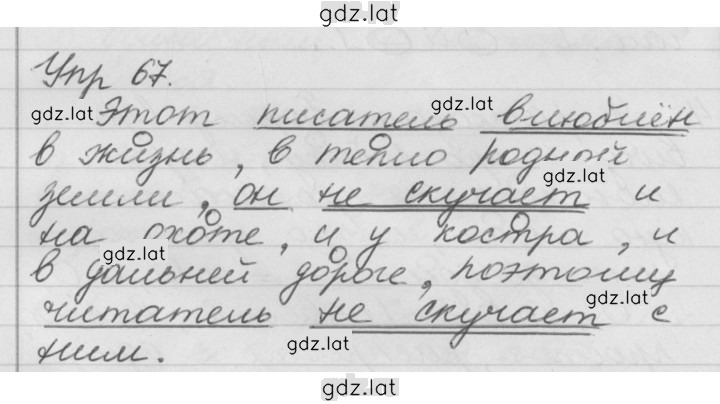 gdz.lat
Упр 67.
gdz.lat
gdz.lat
Этот писатель влюблён
в жизнь, в тепло родной
gdz.lat
земли, он не скучает и
на охоте, и у костра, и
gdz.lat
в дальней дороге, поэтому
gdz.lat
читатель не скучает с
gdz.lat
ним.
gdz.lat